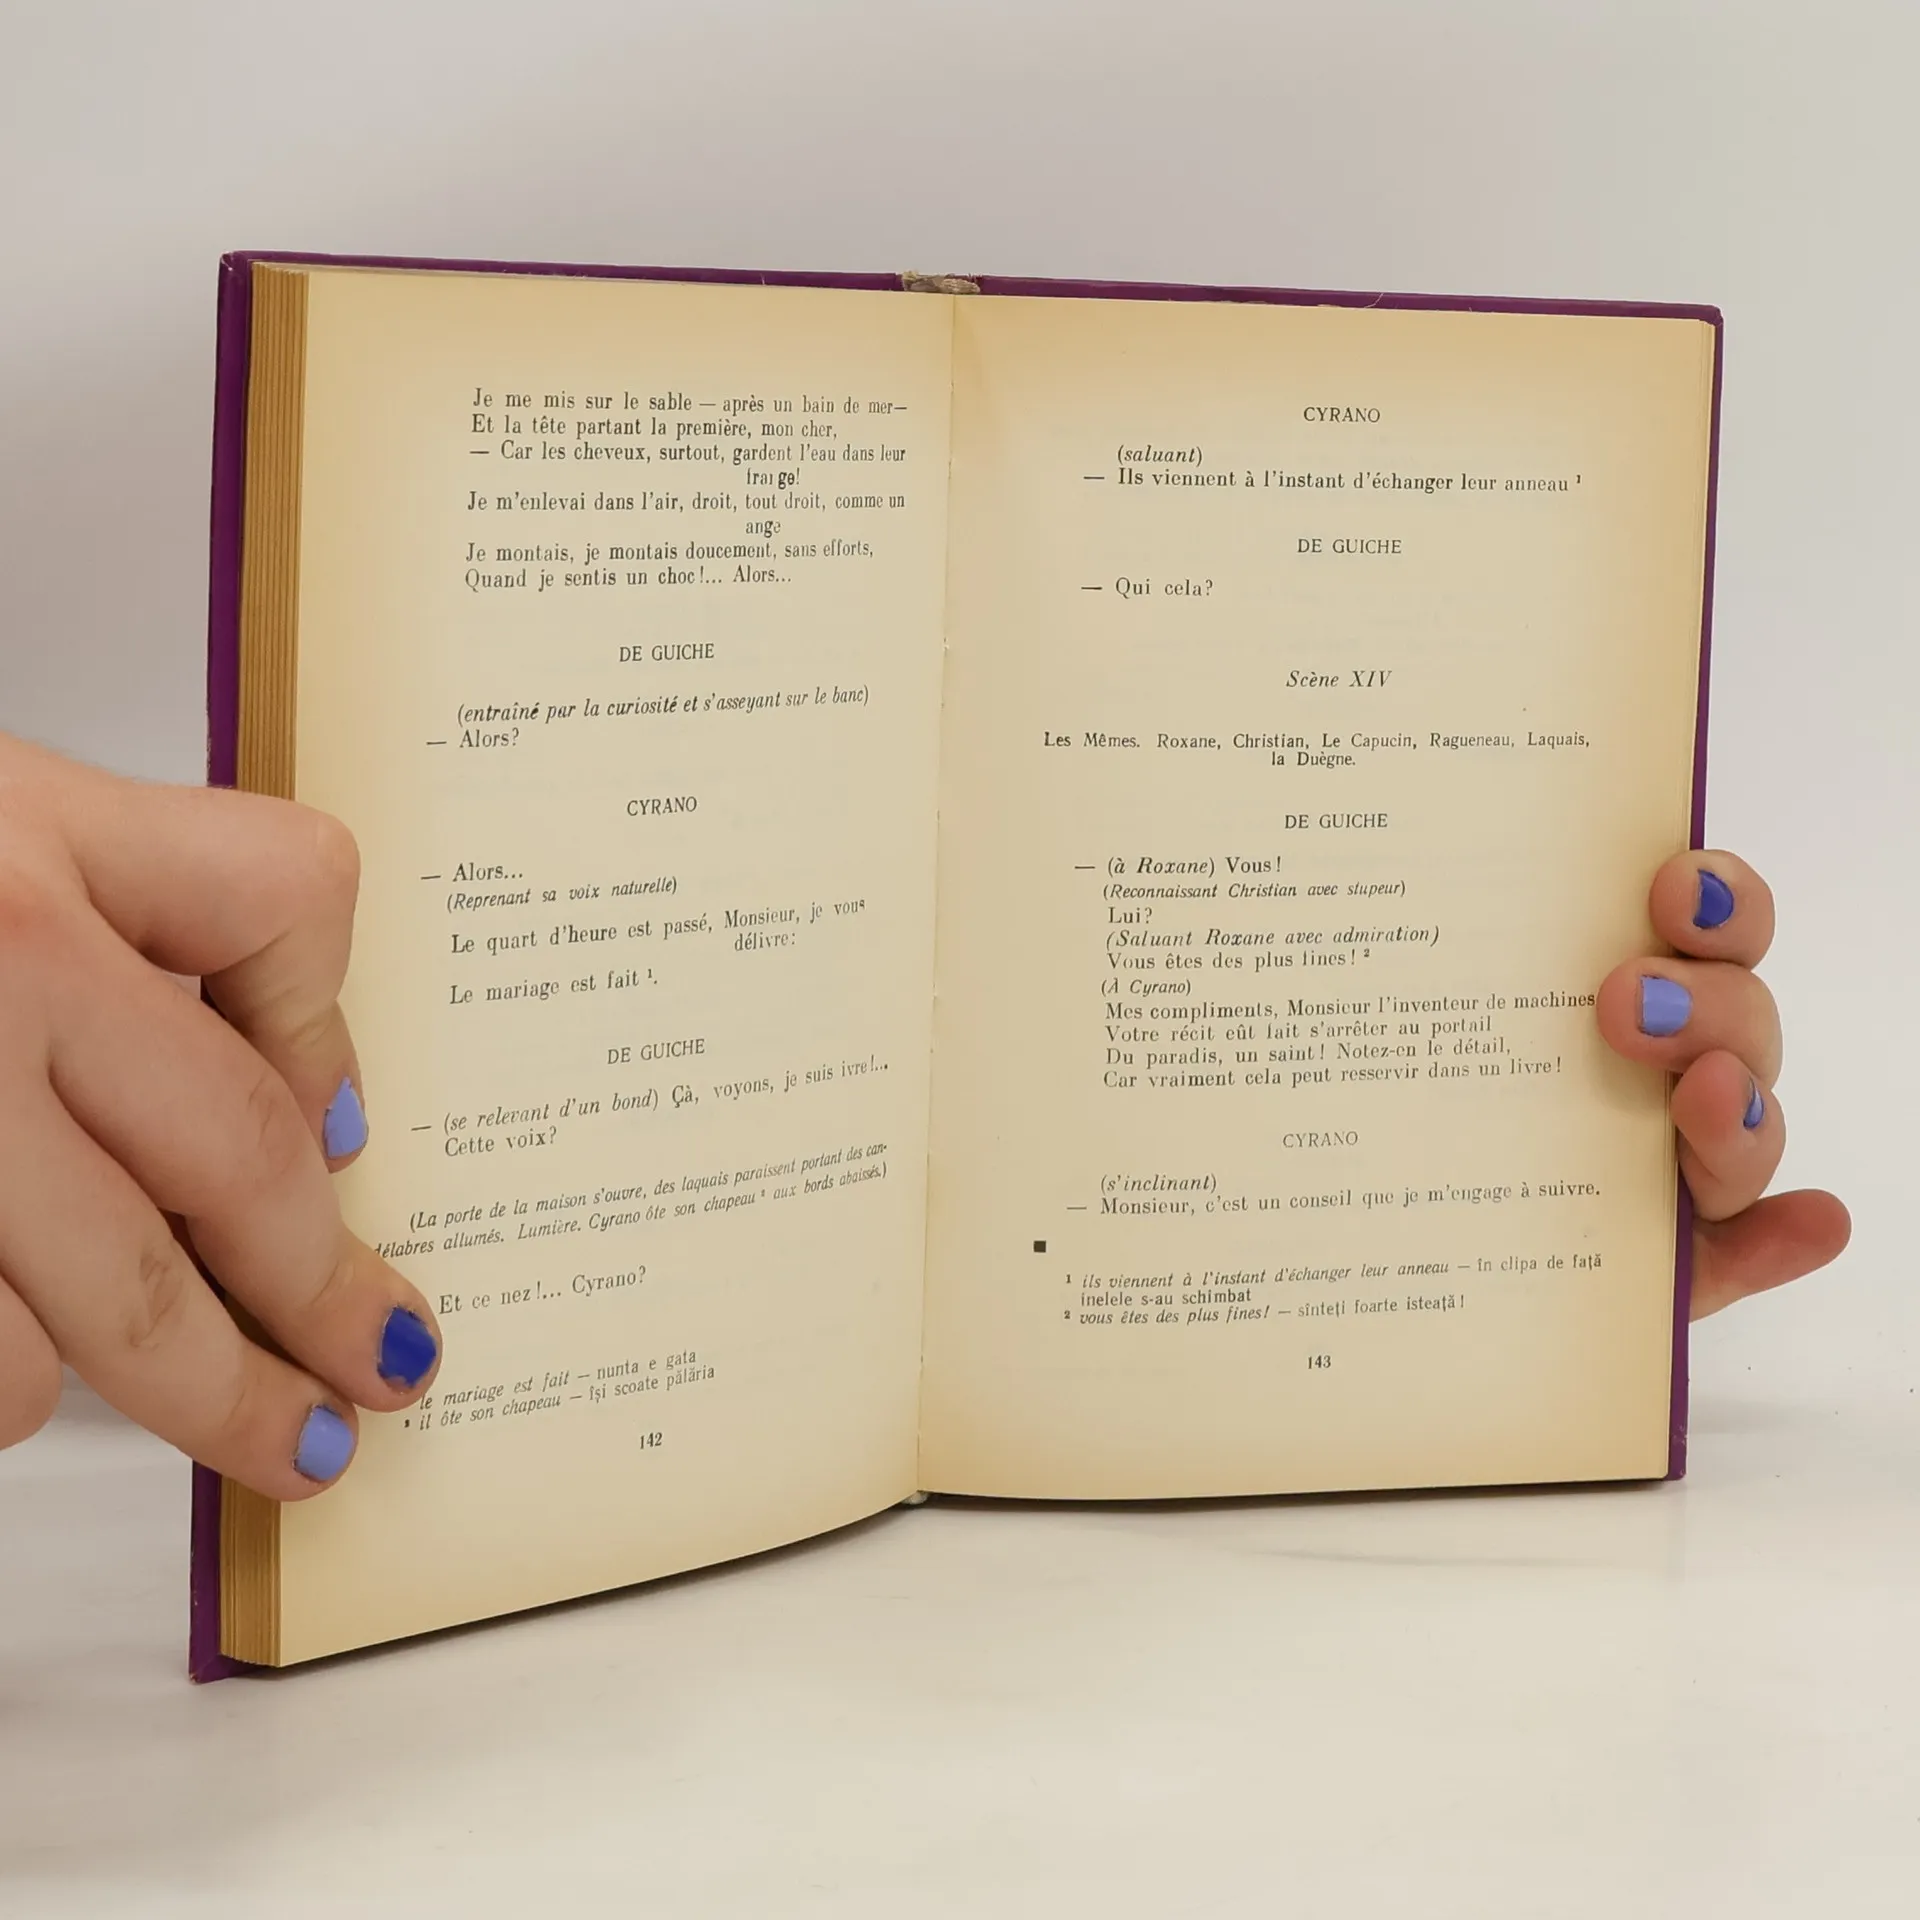 Je me mis sur le sable — après un bain de mer—
Et la tête partant la première, mon cher,
— Car les cheveux, surtout, gardent l'eau dans leur
frange!
Je m'enlevai dans l'air, droit, tout droit, comme un
ange
Je montais, je montais doucement, sans efforts,
Quand je sentis un choc!... Alors...
DE GUICHE
(entraîné par la curiosité et s'asseyant sur le banc)
— Alors?
CYRANO
— Alors...
(Reprenant sa voix naturelle)
Le quart d'heure est passé, Monsieur, je vous
délivre:
Le mariage est fait ¹.
DE GUICHE
— (se relevant d'un bond) Çà, voyons, je suis ivre!...
Cette voix?
(La porte de la maison s'ouvre, des laquais paraissent portant des can-
délabres allumés. Lumière. Cyrano ôte son chapeau ² aux bords abaissés.)
Et ce nez!... Cyrano?
le mariage est fait — nunta e gata
² il ôte son chapeau — își scoate pălăria
142
CYRANO
(saluant)
— Ils viennent à l'instant d'échanger leur anneau ¹
DE GUICHE
— Qui cela?
Scène XIV
Les Mêmes. Roxane, Christian, Le Capucin, Ragueneau, Laquais,
la Duègne.
DE GUICHE
— (à Roxane) Vous!
(Reconnaissant Christian avec stupeur)
Lui?
(Saluant Roxane avec admiration)
Vous êtes des plus fines! ²
(À Cyrano)
Mes compliments, Monsieur l'inventeur de machines
Votre récit eût fait s'arrêter au portail
Du paradis, un saint! Notez-en le détail,
Car vraiment cela peut resservir dans un livre!
CYRANO
(s'inclinant)
— Monsieur, c'est un conseil que je m'engage à suivre.
¹ ils viennent à l'instant d'échanger leur anneau — în clipa de față
inelele s-au schimbat
² vous êtes des plus fines! — sînteți foarte isteață!
143